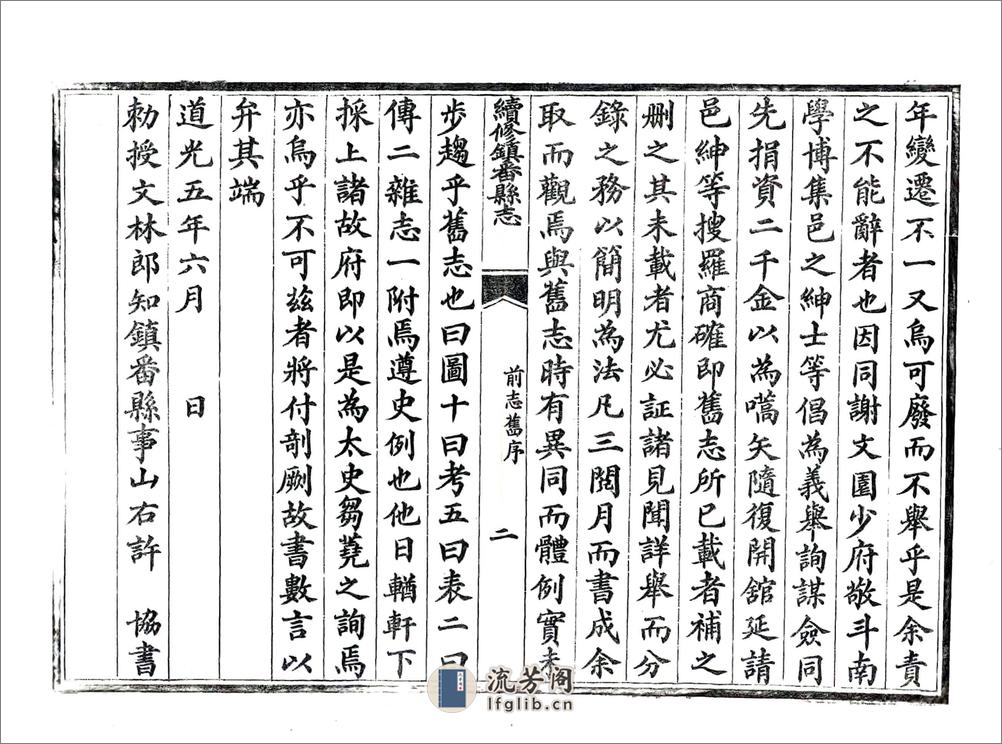 年變遷不一又烏可廢而不舉乎是余責
之不能辭者也因同謝文園少府敬斗南
學博集邑之紳士等倡為義舉詢謀僉同
先捐資二千金以為嚆矢隨復開舘延請
邑紳等搜羅商確即舊志所已載者補之
刪之其未載者尤必証諸見聞詳舉而分
錄之務以簡明為法凡三閱月而書成余
取而觀焉與舊志時有異同而體例實未
續修鎮番縣志
前志舊序
二
步趨乎舊志也曰圖十曰考五曰表二曰
傳二雜志一附焉遵史例也他日輶軒下
採上諸故府即以是為太史芻蕘之詢焉
亦烏乎不可茲者將付剞劂故書數言以
弁其端
道光五年六月 日
勅授文林郎知鎮番縣事山右許 協書
流芳阁
lfglib.cn